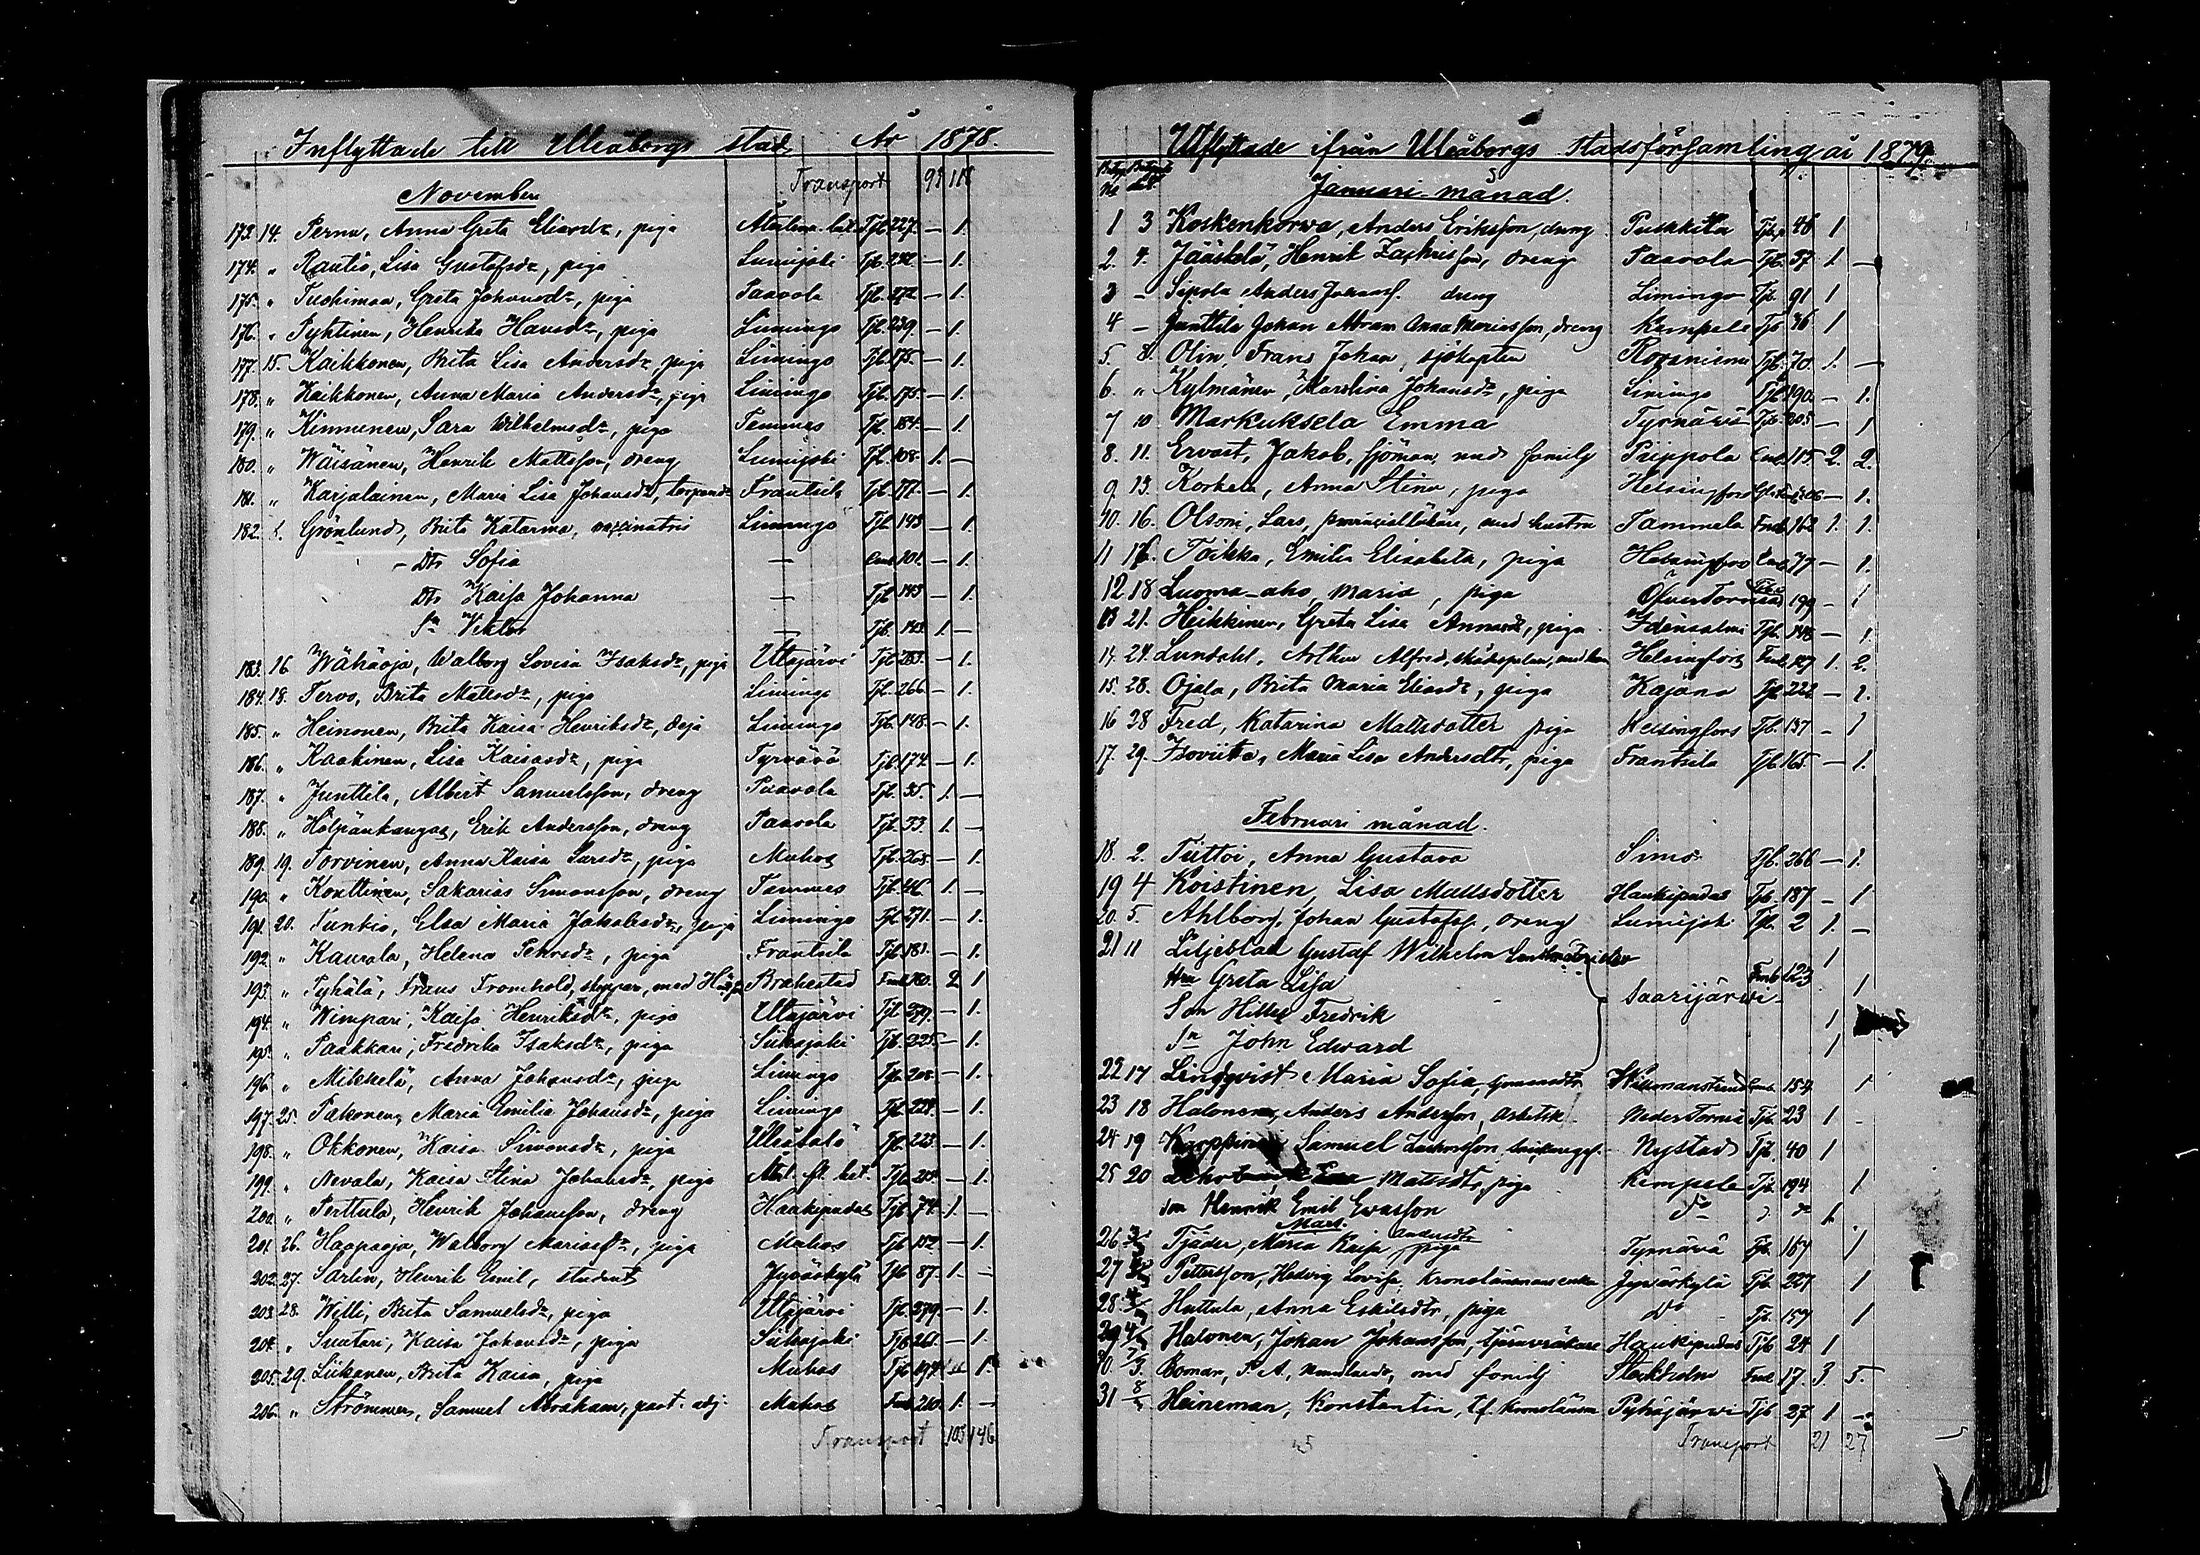 Inflyttade till Uleåborgs stad År 1878.
November Transport 118
173. 14. Perna, Anna Greta Eliasdr, piga Tjb. 227. — 1.
174. " Rautio, Lisa Gustafsdr, piga Lumijoki Tjb. — 1.
175. " Greta Johansdr, piga Paavola Tjb. 272 — 1.
176. " Pyhtinen, Henrika Hansdr, piga Limingo Tjb. 239. — 1.
177. 15. Kaikkonen, Brita Lisa Andersdr, piga Limingo Tjb. 175. — 1.
178. " Kaikkonen, Anna Maria Andersdr, piga Limingo Tjb. 175. — 1.
179. " Kinnunen, Sara Wilhelmsdr, piga Temmes Tjb. 184. — 1.
180. " Wäisänen, Henrik Mattsson, dreng Lumijoki Tjb. 108. 1. —
181. " Karjalainen, Maria Lisa Johansdr, Frantsila Tjb. 177. — 1.
182. " Grönlund, Brita Katarina, vaccinatris Limingo Tjb. 143 — 1.
— Dtr Sofia — 101. — 1.
Dtr Kaisa Johanna — Tjb. 143 — 1.
Sn Viktor — Tjb. 143. 1. —
183. 16. Wähäoja, Walborg Lovisa Isaksdr, piga Utajärvi Tjb. 283. — 1.
184. 18. Tervo, Brita Mattsdr, piga Limingo Tjb. 266. — 1.
185. " Heinonen, Brita Kaisa Henriksdr, deja Limingo Tjb. 148. — 1.
186. " Kaakinen, Lisa Kaisasdr, piga Tyrnävä Tjb. 174. — 1.
187. " Junttila, Albert Samuelsson, dreng Paavola Tjb. 35. 1. —
188. " Holpänkangas, Erik Andersson, dreng Paavola Tjb. 33. 1. —
189. 19. Torvinen, Anna Kaisa Larsdr, piga Muhos Tjb. 268. — 1.
190. " Konttinen, Sakarias Simonsson, dreng Temmes Tjb. 1. —
191. 20. Elsa Maria Jakobsdr, piga Limingo Tjb. 271. — 1.
192. " Kaurala, Helena Petersdr, piga Frantsila Tjb. 181. — 1.
193. " Pyhälä, Frans Fromhold, skeppare, med Brahestad Fmb. 180. 2 1.
194. " Wimpari, Kaisa Henriksdr, piga Utajärvi Tjb. 279. — 1.
195. " Paakkari, Fredrika Isaksdr, piga Siikajoki Tjb. 225. — 1.
196. " Mikkelä, Anna Johansdr, piga Limingo Tjb. 208. — 1.
197. 25. Pakonen, Maria Emilia Johansdr, piga Limingo Tjb. 228. — 1.
198. " Okkonen, Kaisa Simonsdr, piga Uleåsalo Tjb. 223 — 1.
199. " Nevala, Kaisa Stina Johansdr, piga Tjb. — 1.
200. " Perttula, Henrik Johansson, dreng Haukipudas Tjb. 74. 1. —
201. 26. Haapaoja, Walborg Mariasdr, piga Muhos Tjb. — 1.
202. 27. Sarlin, Henrik Emil, student Jyväskylä Tjb. 87. 1. —
203. 28. Willi, Brita Samuelsdr, piga Utajärvi Tjb. 279. — 1.
204. " Suutari, Kaisa Johansdr, piga Siikajoki Tjb. 261. — 1.
205. 29. Liikanen, Brita Kaisa, piga Muhos Tjb. 1.
206. " Strömmer, Samuel Abraham, past. adj. Muhos Fmb. 210. 1. —
Transport 103 146
Utflyttade ifrån Uleåborgs Stadsförsamling år 1879.
Januari månad.
1 3 Koskenkorwa, Anders Eriksson, dreng Pudasjärvi 46 1
2. 4. Jääskelä, Henrik Zachrisson, dreng Paavola Tjb. 57 1. —
3 — Sipola Anders Johansf. dreng Limingo Tjb. 91 1
4 — Junttila Johan Abram Anna Mariasson, dreng Kempele Tjb 36 1
5 8. Olin, Frans Johan, sjökapten Rovaniemi Tjb. 70. 1. —
6. " Kylmänen, Karolina Johansdr, piga Limingo Tjb. 190. — 1.
7 10 Markuksela Emma Tyrnävä Tjb. 203 — 1
8. 11. Ervast, Jakob, sjöman, med familj Piippola 115. 2. 2.
9. 13. Korkala, Anna Stina, piga Helsingfors — 1.
10. 16. Olsoni, Lars, provinsialläkare, med hustru Tammela Fmb. 162 1. 1.
11 16. Toikka, Emilia Elisabeta, piga Helsingfors 77 — 1.
12 18 Luoma-aho, Maria, piga ÖfverTorneå 199 — 1
13 21. Heikkinen, Greta Lisa Annasdr, piga Idensalmi Tjb. 148 — 1.
14. 24. Lundahl, Arthur Alfred, skådespelare, Helsingfors Fmb. 127 1. 2.
15. 28. Ojala, Brita Maria Eliasdr, piga Kajana Tjb. 222 — 1.
16 28 Fred, Katarina Mattsdotter piga Helsingfors Tjb. 137 — 1
17. 29. Isoviita, Maria Lisa Andersdtr, piga Frantsila Tjb. 165 — 1.
Februari månad.
18. 2. Tiittoi, Anna Gustava Simo Tjb. 266 — 1.
19 4 Koistinen, Lisa Mattsdotter Haukipudas Tjb. 187 — 1
20. 5. Ahlborg, Johan Gustafsf., dreng Lumijoki Tjb. 2 1. —
21 11 Liljeblad Gustaf Wilhelm 1
Hru Greta Lisa Fmb 123 1
Son Fredrik Saarijärwi 1
Sn John Edward 1
22 17 Lindqvist Maria Sofia, Willmanstrand 154 1
23 18 Halonen, Anders Andersson, Arbetsk. NederTorneå Tjb. 23 1
24 19 Karppinen Samuel Nystad Tjb. 40 1
25 20 Mattsdtr, piga Kempele Tjb. 194 1
Son Henrik Emil Evasson do 1.
Mars.
26 Tjäder, Maria Kaisa Andersdtr piga Tyrnävä Tjb. 167 1
27 Pettersson, Hedvig Lovisa, Kronolänsmansenka Jyväskylä Tjb. 227 1
28. Huttula, Anna Eskilsdtr, piga do Tjb. 157 1
29 Halonen, Johan Johansson, Haukipudas Tjb 24 1
30. 7/3. Boman, P. A., med familj Stockholm Fmb. 17. 3. 5.
31 8 Heineman, Konstantin, Pyhäjärwi Tjb 27 1 —
Transport 21 27